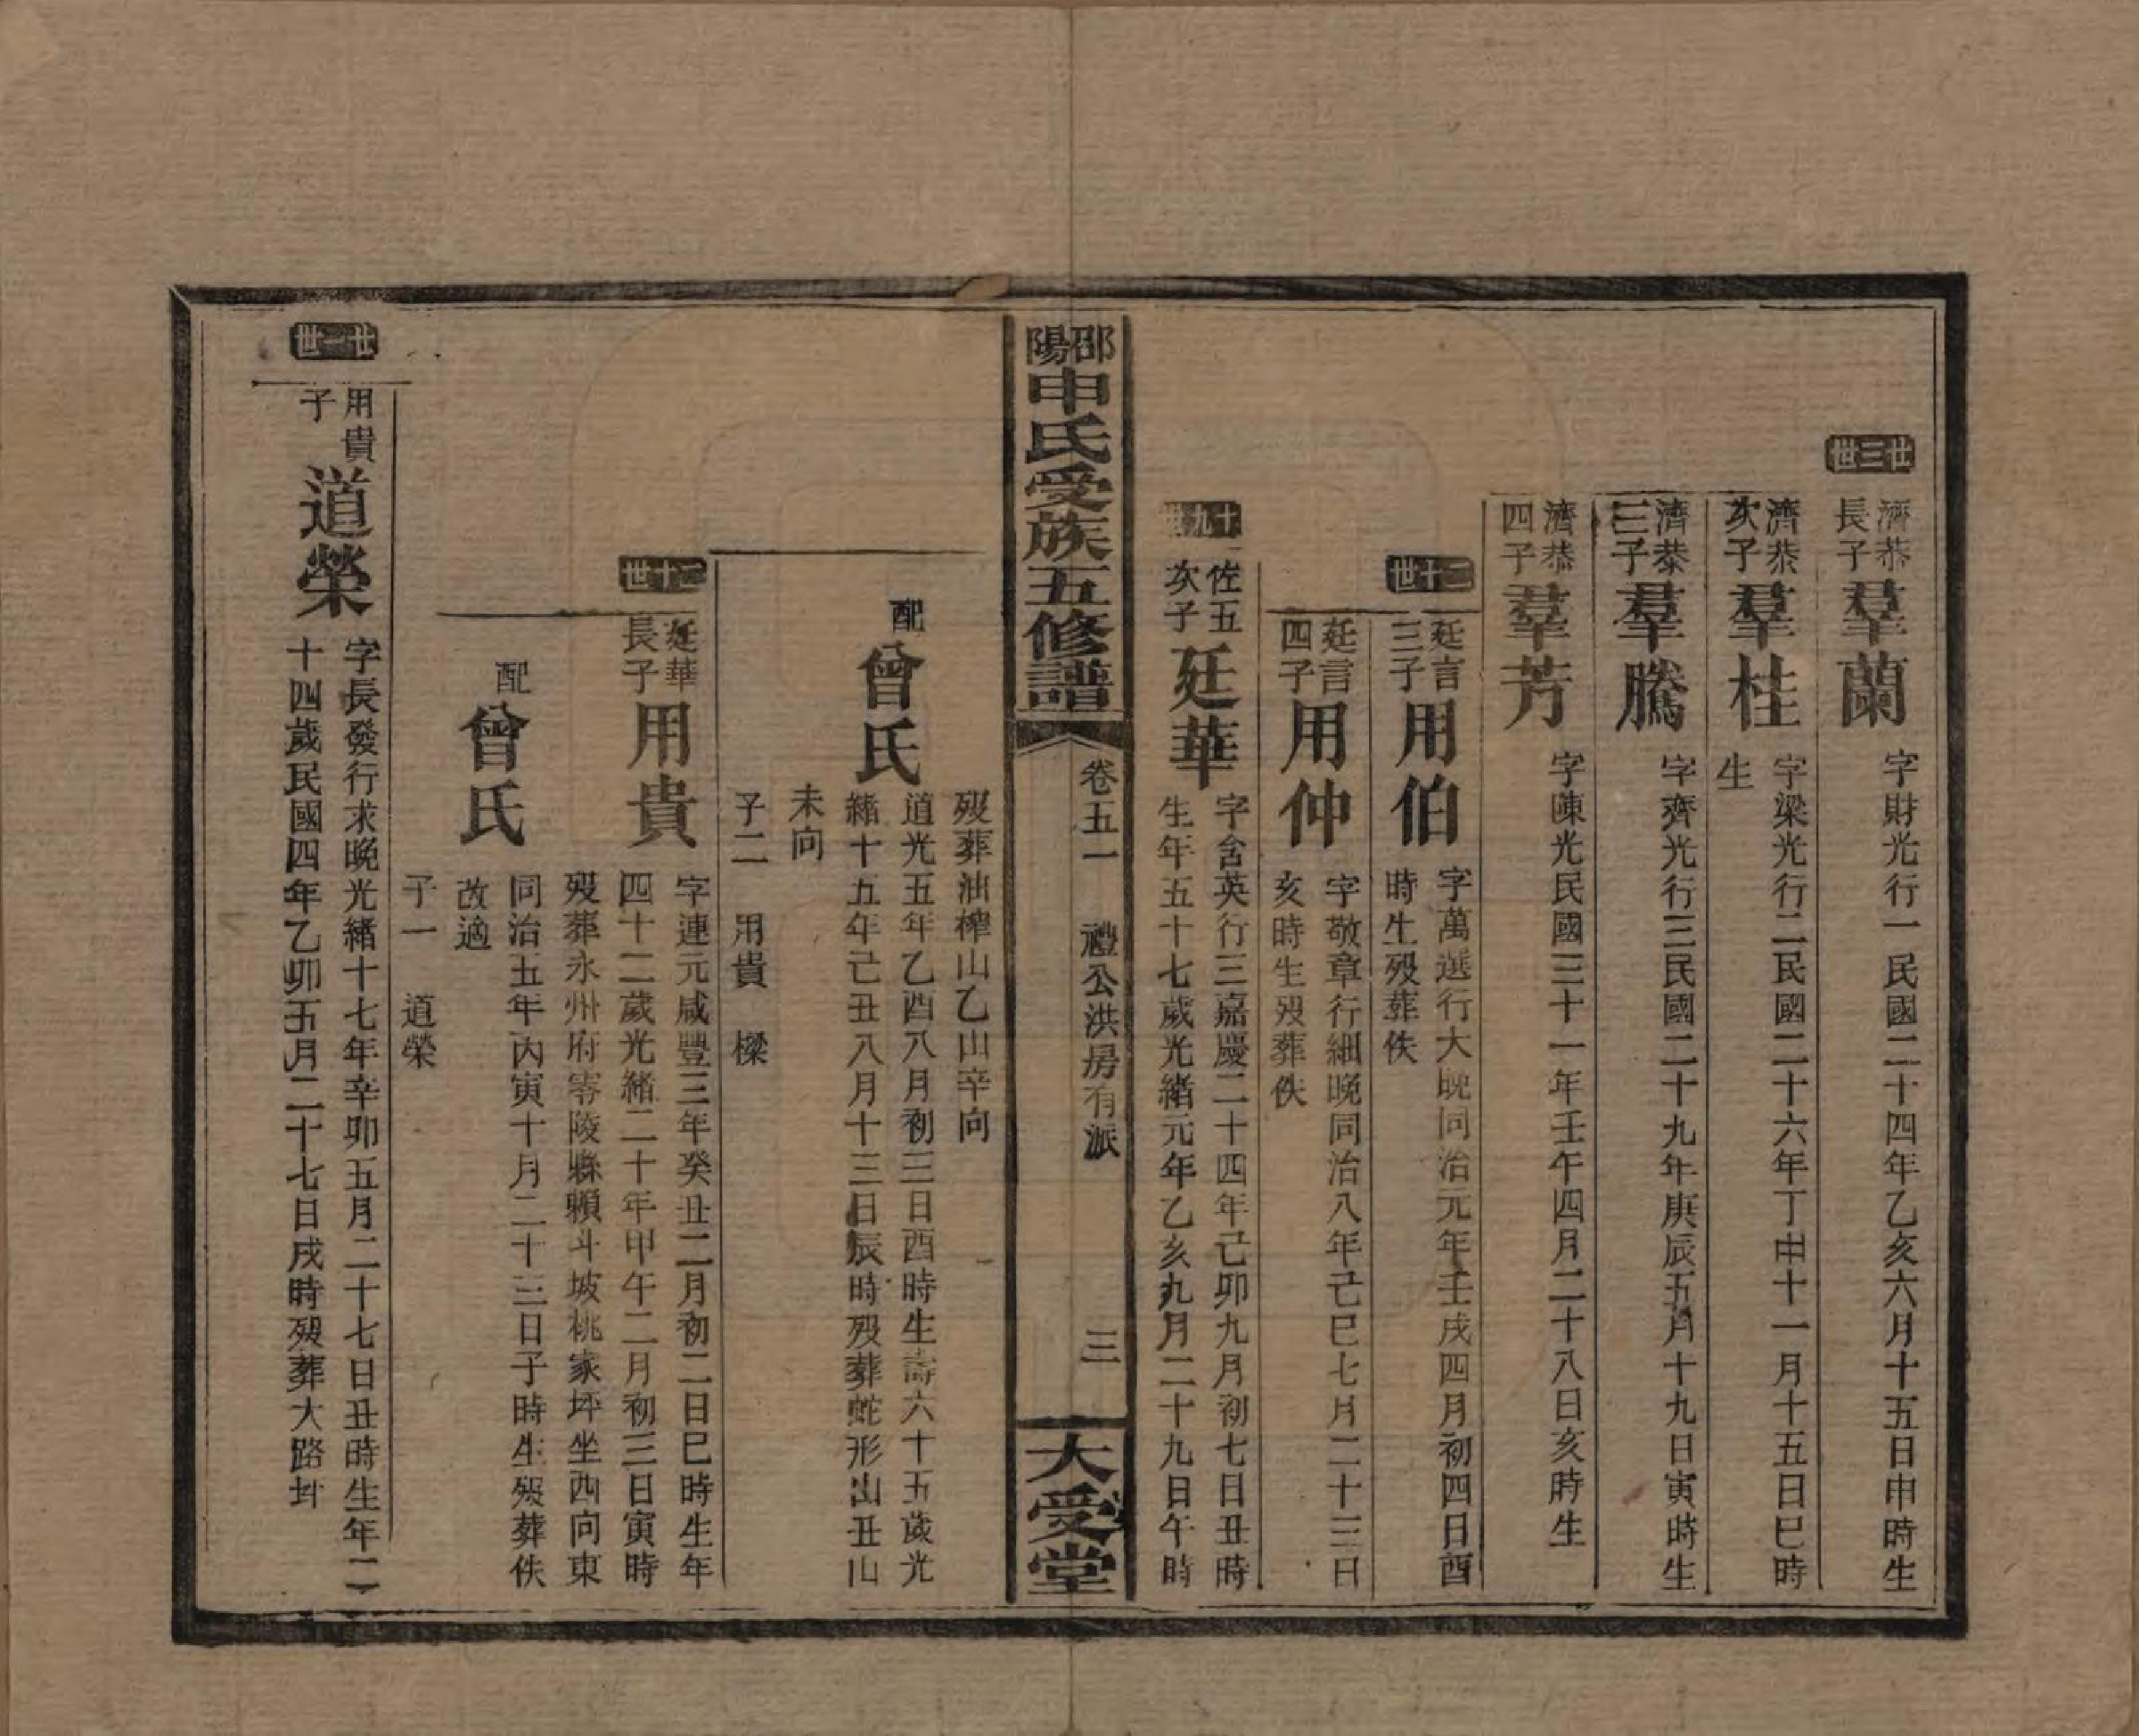 廿三世
濟恭長子
羣蘭
字財光行一民國二十四年乙亥六月十五日申時生
濟恭次子
羣桂
字梁光行二民國二十六年丁申十一月十五日巳時
生
濟恭三子
羣騰
字齊光行三民國二十九年庚辰五月十九日寅時生
濟恭四子
羣芳
字陳光民國三十一年壬午四月二十八日亥時生
二十世
廷言三子
用伯
字萬選行大晩同治元年壬戌四月初四日酉
時生殁葬佚
廷言四子
用仲
字敬章行細晩同治八年己巳七月二十三日
亥時生殁葬佚
十九世
佐五次子
廷華
字含英行三嘉慶二十四年己卯九月初七日丑時
生年五十七歲光緒元年乙亥九月二十九日午時
邵陽申氏受族五修譜
卷五一 禮公洪房有派
三
大受堂
殁葬油榨山乙山辛向
配
曾氏
道光五年乙酉八月初三日酉時生壽六十五歲光
緒十五年己丑八月十三日辰時殁葬蛇形出丑山
未向
子二 用貴 樑
二十世
廷華長子
用貴
字連元咸豐三年癸丑二月初二日巳時生年
四十二歲光緒二十年甲午二月初三日寅時
殁葬永州府零陵縣賴斗坡桃家坪坐西向東
配
曾氏
同治五年丙寅十月二十三日子時生殁葬佚
改適
子一 道榮
廿一世
用貴子
道榮
字長發行求晩光緒十七年辛卯五月二十七日丑時生年二
十四歲民國四年乙卯五月二十七日戌時殁葬大路圤